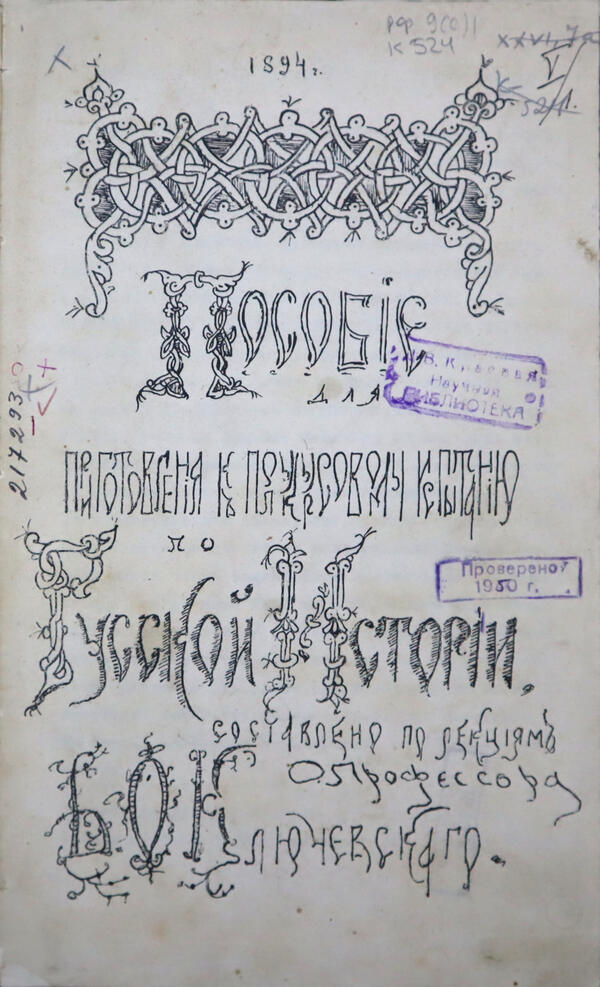 РФ 9(С)1
К 524
XXVI, 7а
I/1.
К
524
1894 г.
Пособіе
для
Научная
БИБЛИОТЕКА
217293
приготовленія къ полукурсовому испытанію
по
Проверено
1950 г.
Русской Исторіи,
составлено по лекціямъ
О. Профессора
В. О. Ключевскаго.